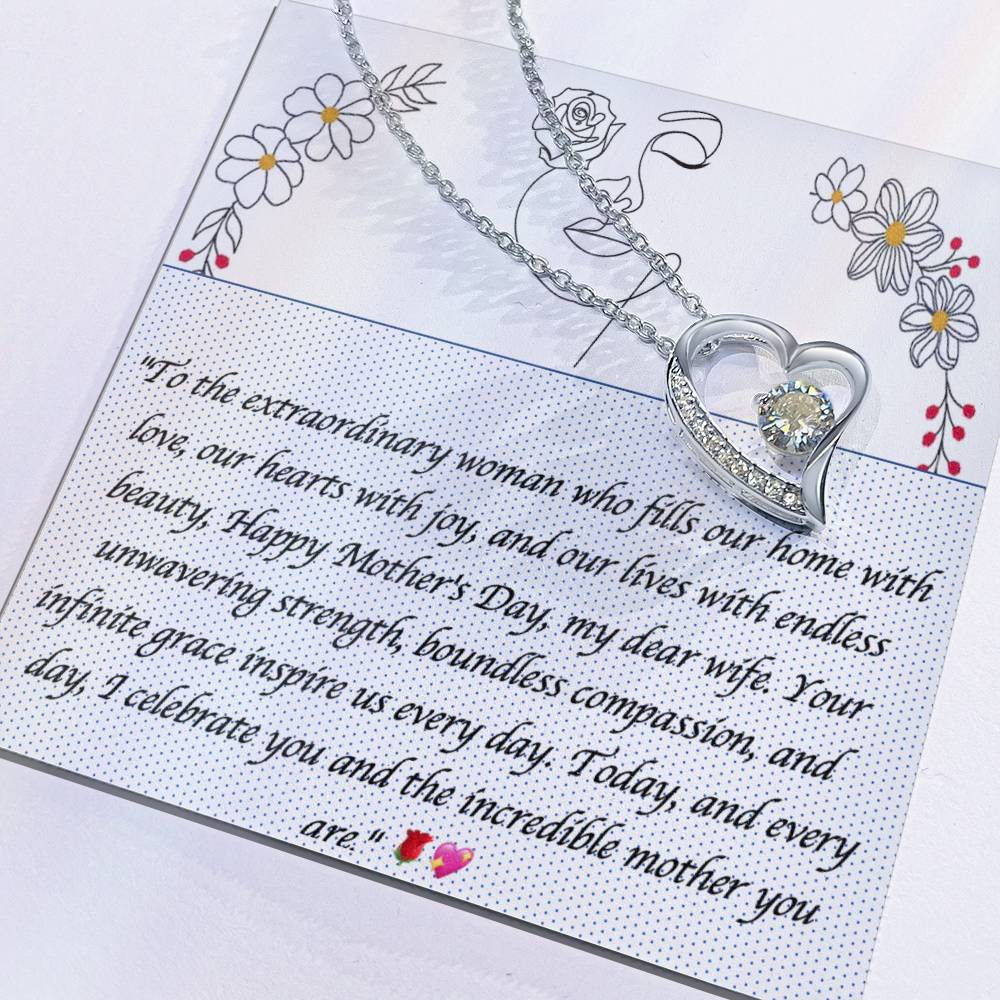 "To the extraordinary woman who fills our home with
love, our hearts with joy, and our lives with endless
beauty, Happy Mother's Day, my dear wife. Your
unwavering strength, boundless compassion, and
infinite grace inspire us every day. Today, and every
day, I celebrate you and the incredible mother you
are." 🌹💖